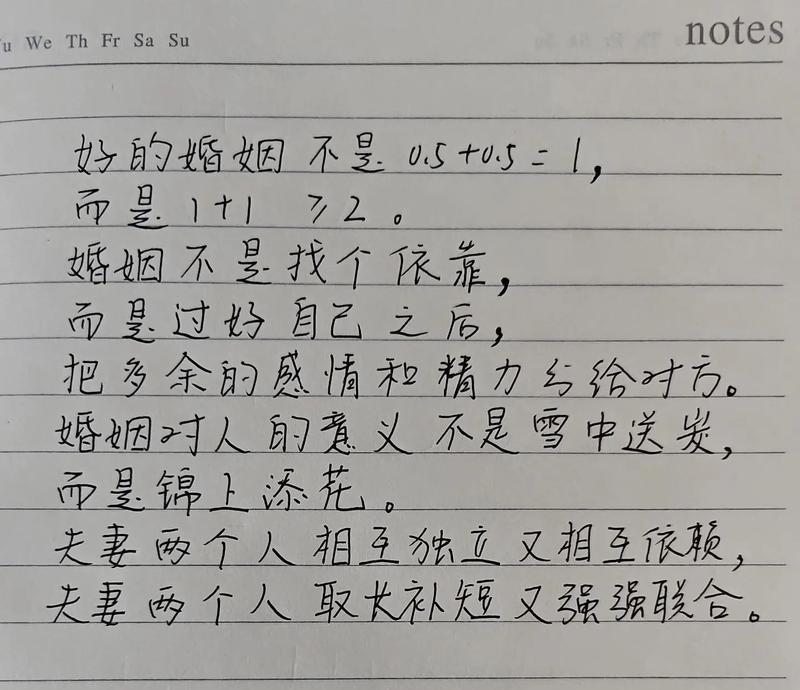 Tu We Th Fr Sa Su
notes
好的婚姻不是0.5+0.5=1,
而是1+1 ≥2。
婚姻不是找个依靠,
而是过好自己之后,
把多余的感情和精力分给对方。
婚姻对人的意义不是雪中送炭,
而是锦上添花。
夫妻两个人相互独立又相互依赖,
夫妻两个人取长补短又强强联合。